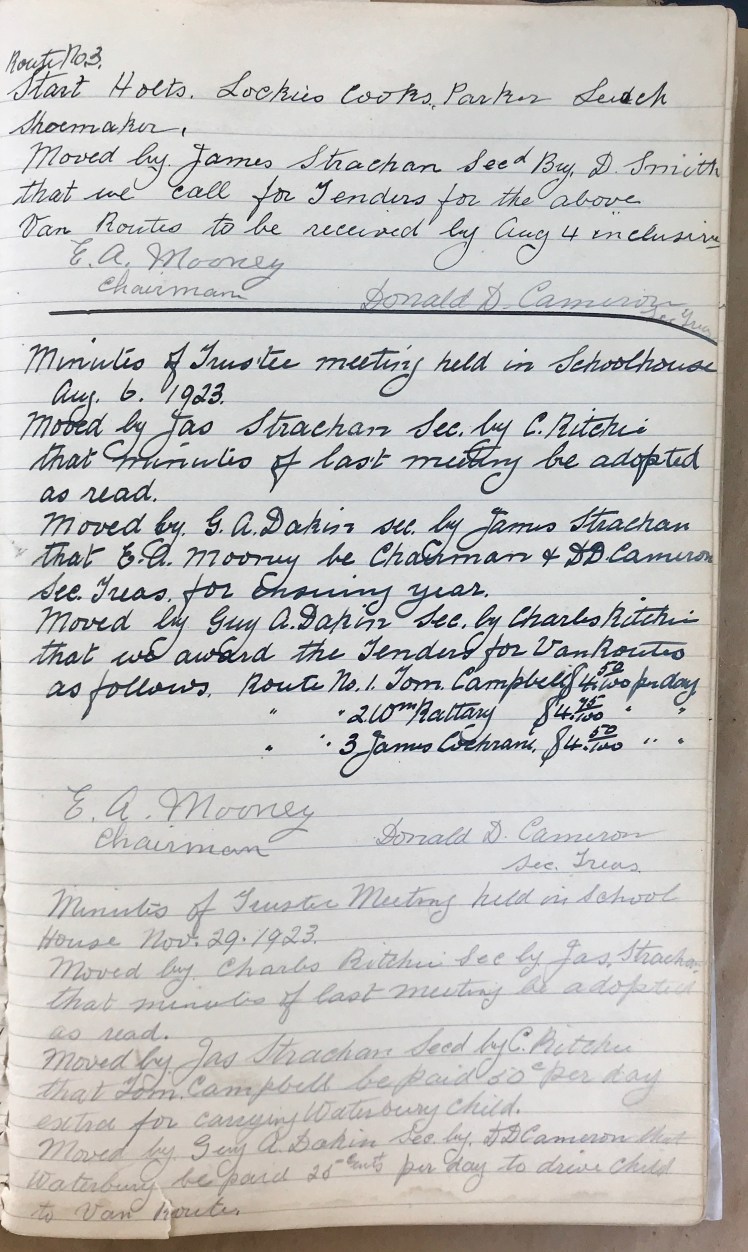 Route No. 3.
Start Holts. Lockies Cooks, Parker Leitch
Shoemaker.
Moved by James Strachan Secd By, D. Smith
that we call for Tenders for the above
Van Routes to be received by Aug 4 inclusive
E. A. Mooney
Chairman
Donald D. Cameron
Sec Treas
Minutes of Trustee meeting held in Schoolhouse
Aug. 6. 1923.
Moved by Jas Strachan Sec. by C. Ritchie
that minutes of last meeting be adopted
as read.
Moved by. G. A. Dakin sec. by James Strachan
that E. A. Mooney be Chairman & D D. Cameron
Sec. Treas. for ensuing year.
Moved by Guy A. Dakin Sec. by Charles Ritchie
that we award the Tenders for Van Routes
as follows. Route No. 1. Tom. Campbell $4. 50/100 per day
" " 2 Wm Rattary $4. 75/100 " "
" " 3 James Cochrane, $4. 50/100 " "
E. A. Mooney
Chairman
Donald D. Cameron
Sec. Treas.
Minutes of Trustee Meeting held in School
House Nov. 29. 1923.
Moved by Charles Ritchie Sec by Jas. Strachan
that minutes of last meeting be adopted
as read.
Moved by Jas Strachan Secd by C. Ritchie
that Tom. Campbell be paid 50c per day
extra for carrying Waterbury Child.
Moved by Guy A. Dakin Sec by, D D Cameron that
Waterbury be paid 25 cents per day to drive child
to Van Route.